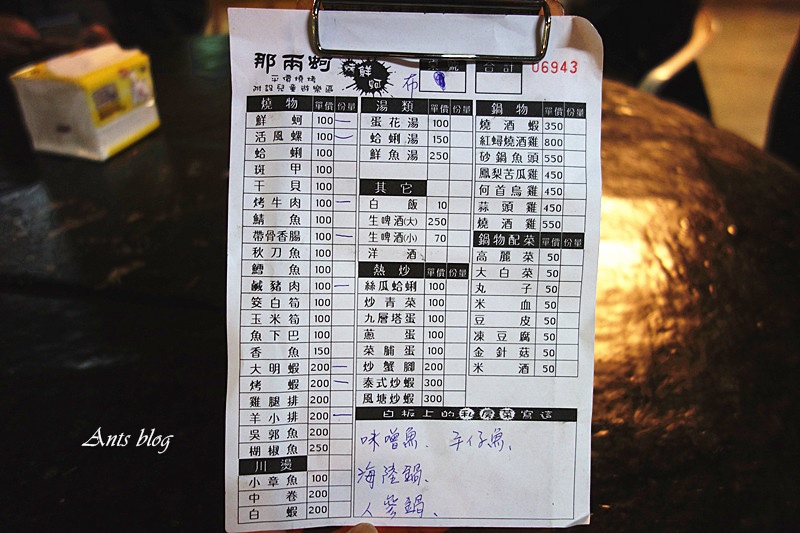 那兩蚵
平價燒烤
附設兒童遊樂區
鮮蚵
布
桌號 合計 06943
燒物 單價 份量
鮮蚵 100 一
活風螺 100 一
蛤蜊 100
斑甲 100
干貝 100
烤牛肉 100 一
鯖魚 100
帶骨香腸 100 一
秋刀魚 100
鱈魚 100
鹹豬肉 100 一
筊白筍 100
玉米筍 100
魚下巴 100
香魚 150
大明蝦 200 一
烤蝦 200 一
雞腿排 200
羊小排 200 一
吳郭魚 200
椒魚 250
川燙
小章魚 100
中卷 200
白蝦 200
湯類 單價 份量
蛋花湯 100
蛤蜊湯 150
鮮魚湯 250
其它
白飯 10
生啤酒(大) 250
生啤酒(小) 70
洋酒
熱炒 單價 份量
絲瓜蛤蜊 100
炒青菜 100
九層塔蛋 100
蔥蛋 100
菜脯蛋 100
炒蟹腳 200
泰式炒蝦 300
風塘炒蝦 300
鍋物 單價 份量
燒酒蝦 350
紅蟳燒酒雞 800
砂鍋魚頭 550
鳳梨苦瓜雞 450
何首烏雞 450
蒜頭雞 450
燒酒雞 550
鍋物配菜 單價 份量
高麗菜 50
大白菜 50
丸子 50
米血 50
豆皮 50
凍豆腐 50
金針菇 50
米酒 50
白板上的私房菜寫這
味噌魚、午仔魚、
海陸鍋、
人蔘鍋、
Ants blog